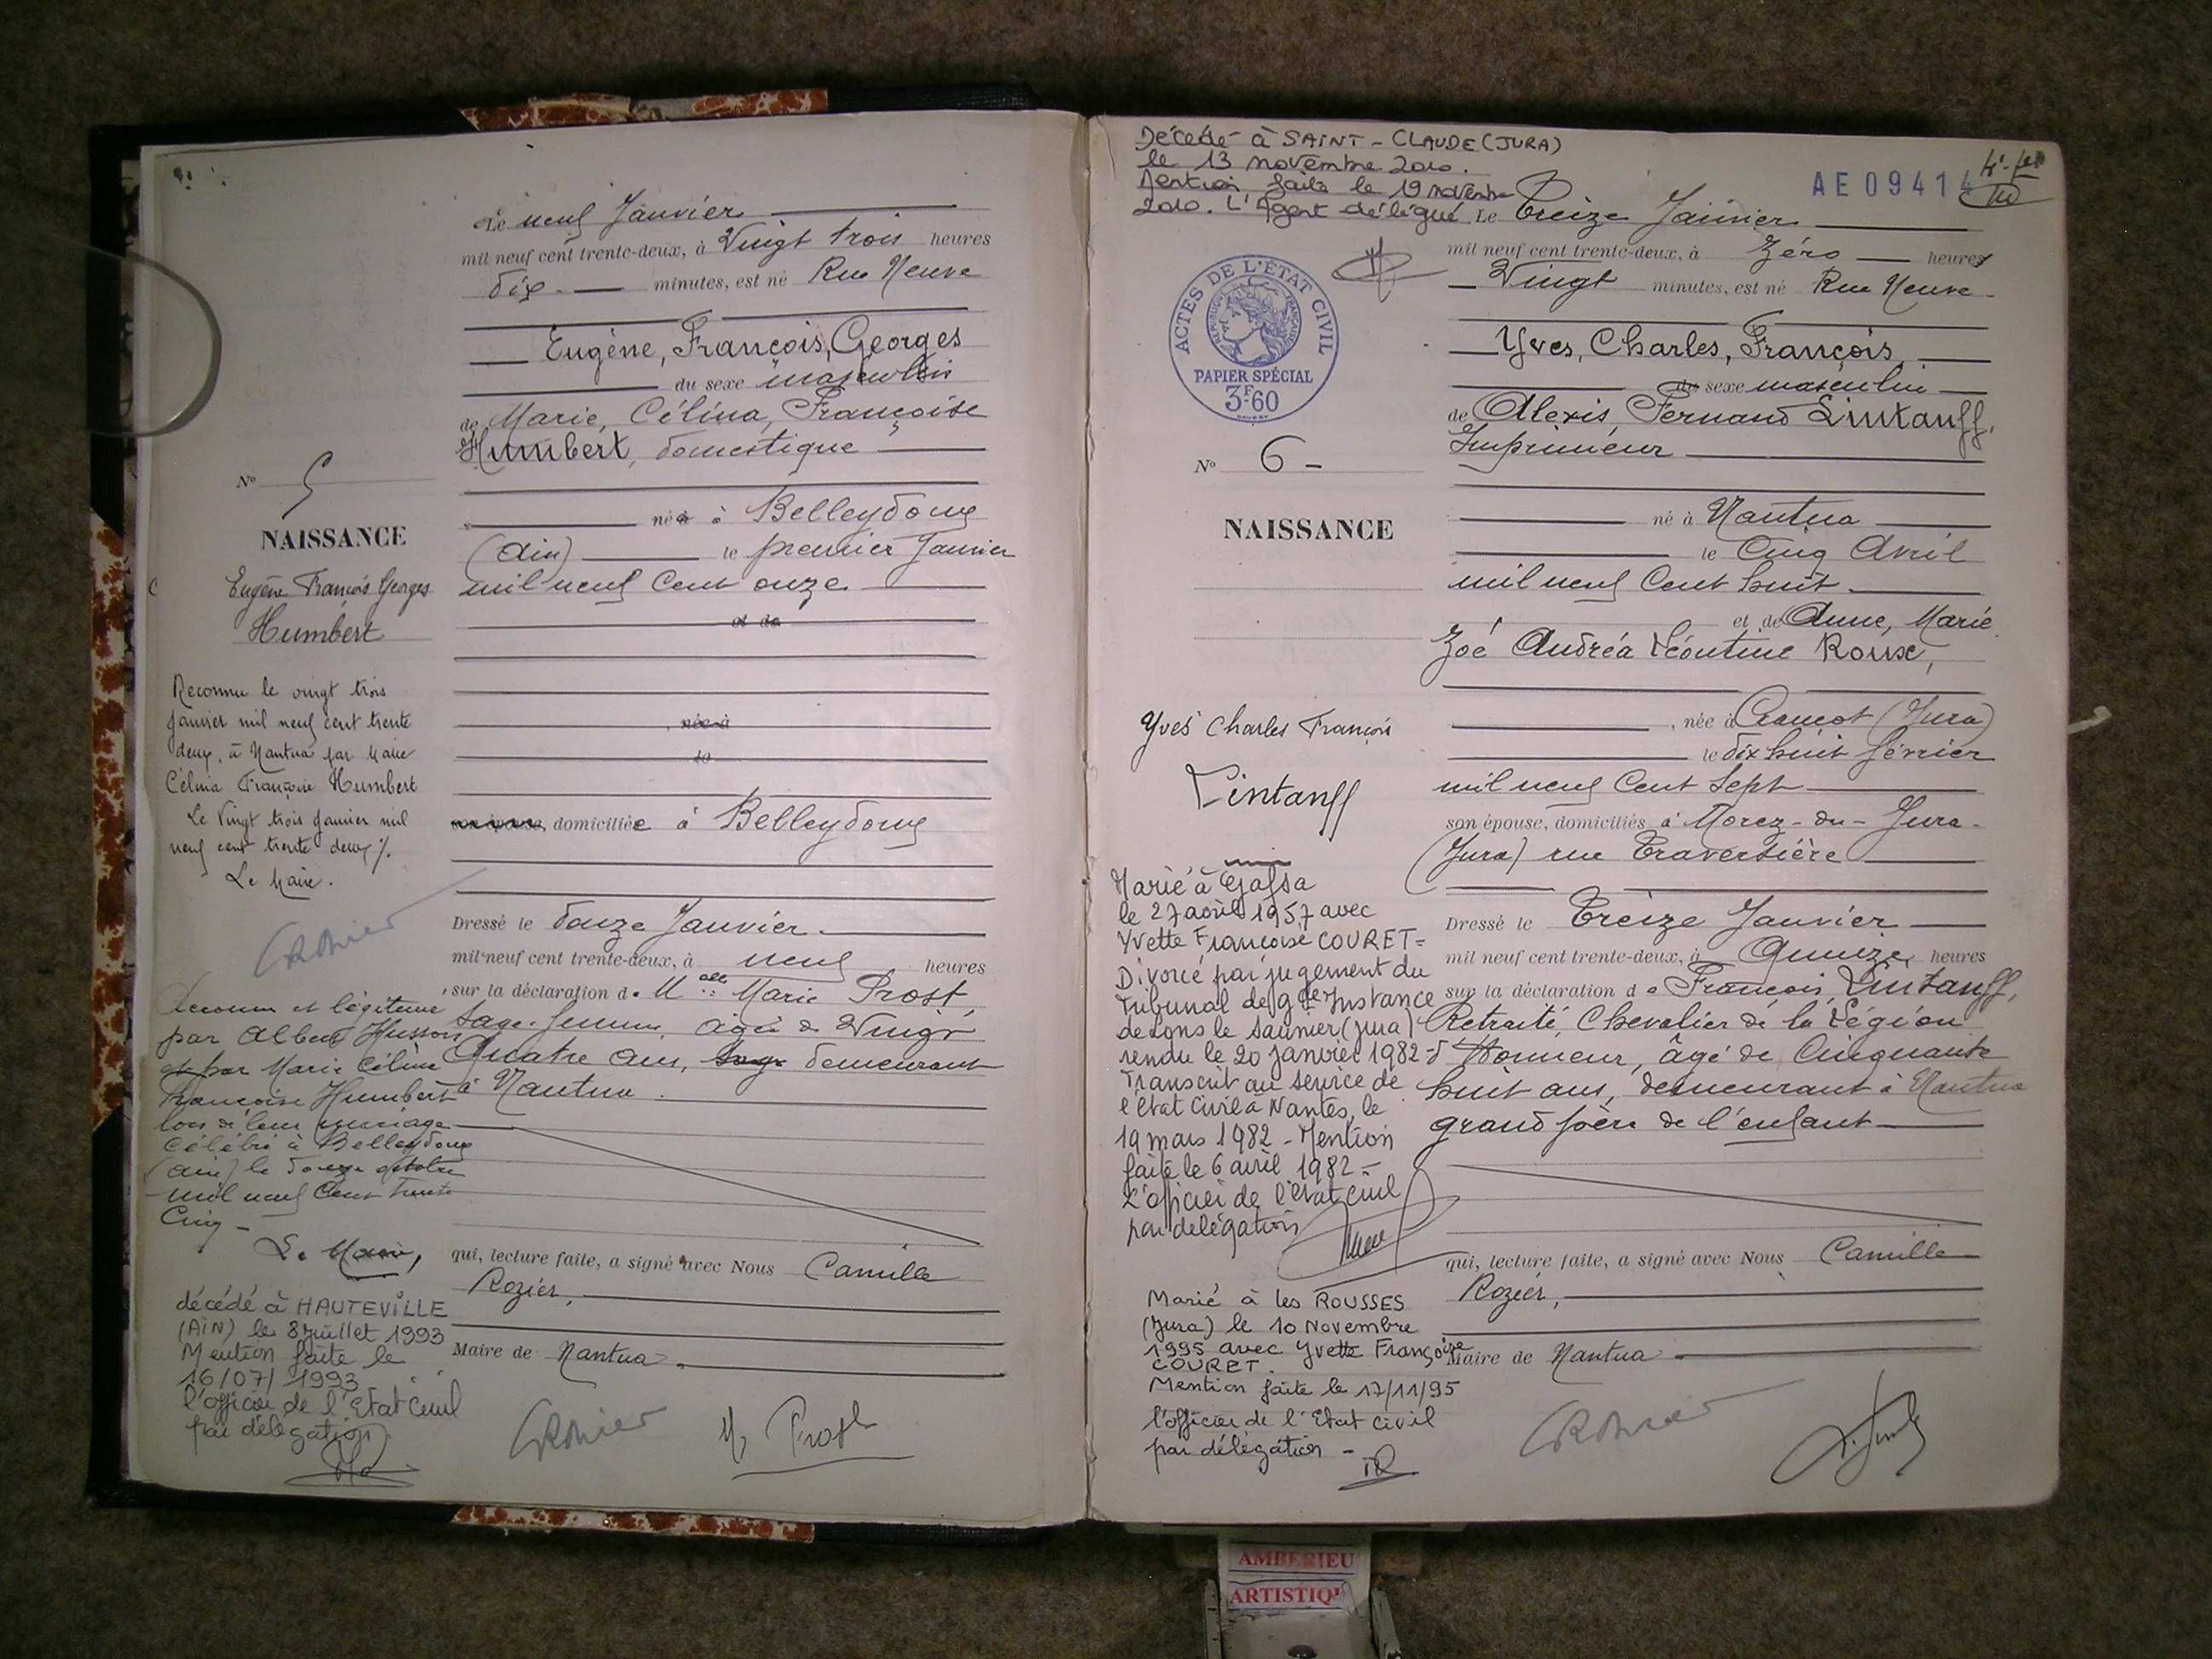 Le neuf Janvier
mil neuf cent trente-deux, à Vingt trois heures
dix minutes, est né Rue Neuve
Eugène, François, Georges
du sexe masculin
de Marie, Célina, Françoise
Humbert, domestique
née à Belleydoux
(Ain) le premier Janvier
mil neuf cent onze
et de
née à
le
son épouse, domiciliée à Belleydoux
Dressé le douze Janvier
mil neuf cent trente-deux, à neuf heures
sur la déclaration de Melle Marie Prost,
Sage-femme, âgée de Vingt
Quatre ans, demeurant
à Nantua
qui, lecture faite, a signé avec Nous Camille
Rozier,
Maire de Nantua
CRozier
M. Prost
No 5
NAISSANCE
Eugène François Georges
Humbert
Reconnu le vingt trois
janvier mil neuf cent trente
deux, à Nantua par Marie
Célina Françoise Humbert
Le Vingt trois janvier mil
neuf cent trente deux /.
Le Maire.
CRozier
Reconnu et légitimé
par Albert Husson
et par Marie Célina
Françoise Humbert
lors de leur mariage
célébré à Belleydoux
(Ain) le douze octobre
mil neuf Cent trente
Cinq -
Le Maire,
décédé à HAUTEVILLE
(AIN) le 8 juillet 1993
Mention faite le
16/07/1993
l'officier de l'Etat Civil
par délégation
Décédé à SAINT-CLAUDE (JURA)
le 13 novembre 2010.
Mention faite le 19 novembre
2010. L'Agent délégué
AE09414
ACTES DE L'ÉTAT CIVIL
RÉPUBLIQUE FRANÇAISE
PAPIER SPÉCIAL
3F60
No 6 -
NAISSANCE
Yves Charles François
Lintanff
Marié à Gafsa
le 27 août 1957 avec
Yvette Françoise COURET =
Divorcé par jugement du
Tribunal de Gde Instance
de Lons le Saunier (Jura)
rendu le 20 janvier 1982 -
Transcrit au service de
l'état Civil à Nantes, le
19 mars 1982 - Mention
faite le 6 avril 1982 -
L'officier de l'état civil
par délégation
Marié à les ROUSSES
(Jura) le 10 Novembre
1995 avec Yvette Françoise
COURET.
Mention faite le 17/11/95
l'officier de l'Etat civil
par délégation -
Le treize Janvier
mil neuf cent trente-deux, à Zéro heures
Vingt minutes, est né Rue Neuve
Yves, Charles, François
du sexe masculin
de Alexis, Fernand Lintanff,
Imprimeur
né à Nantua
le Cinq Avril
mil neuf Cent huit
et de Anne, Marie
Zoé Andréa Léontine Roux,
née à Crançot (Jura)
le dix huit février
mil neuf Cent Sept
son épouse, domiciliés à Morez-du-Jura-
(Jura) rue Traversière
Dressé le Treize Janvier
mil neuf cent trente-deux, à Quinze heures
sur la déclaration de François Lintanff,
Retraité, Chevalier de la Légion
d'Honneur, âgé de Cinquante
huit ans, demeurant à Nantua
grand père de l'enfant
qui, lecture faite, a signé avec Nous Camille
Rozier,
Maire de Nantua
CRozier
AMBERIEU
ARTISTIQU